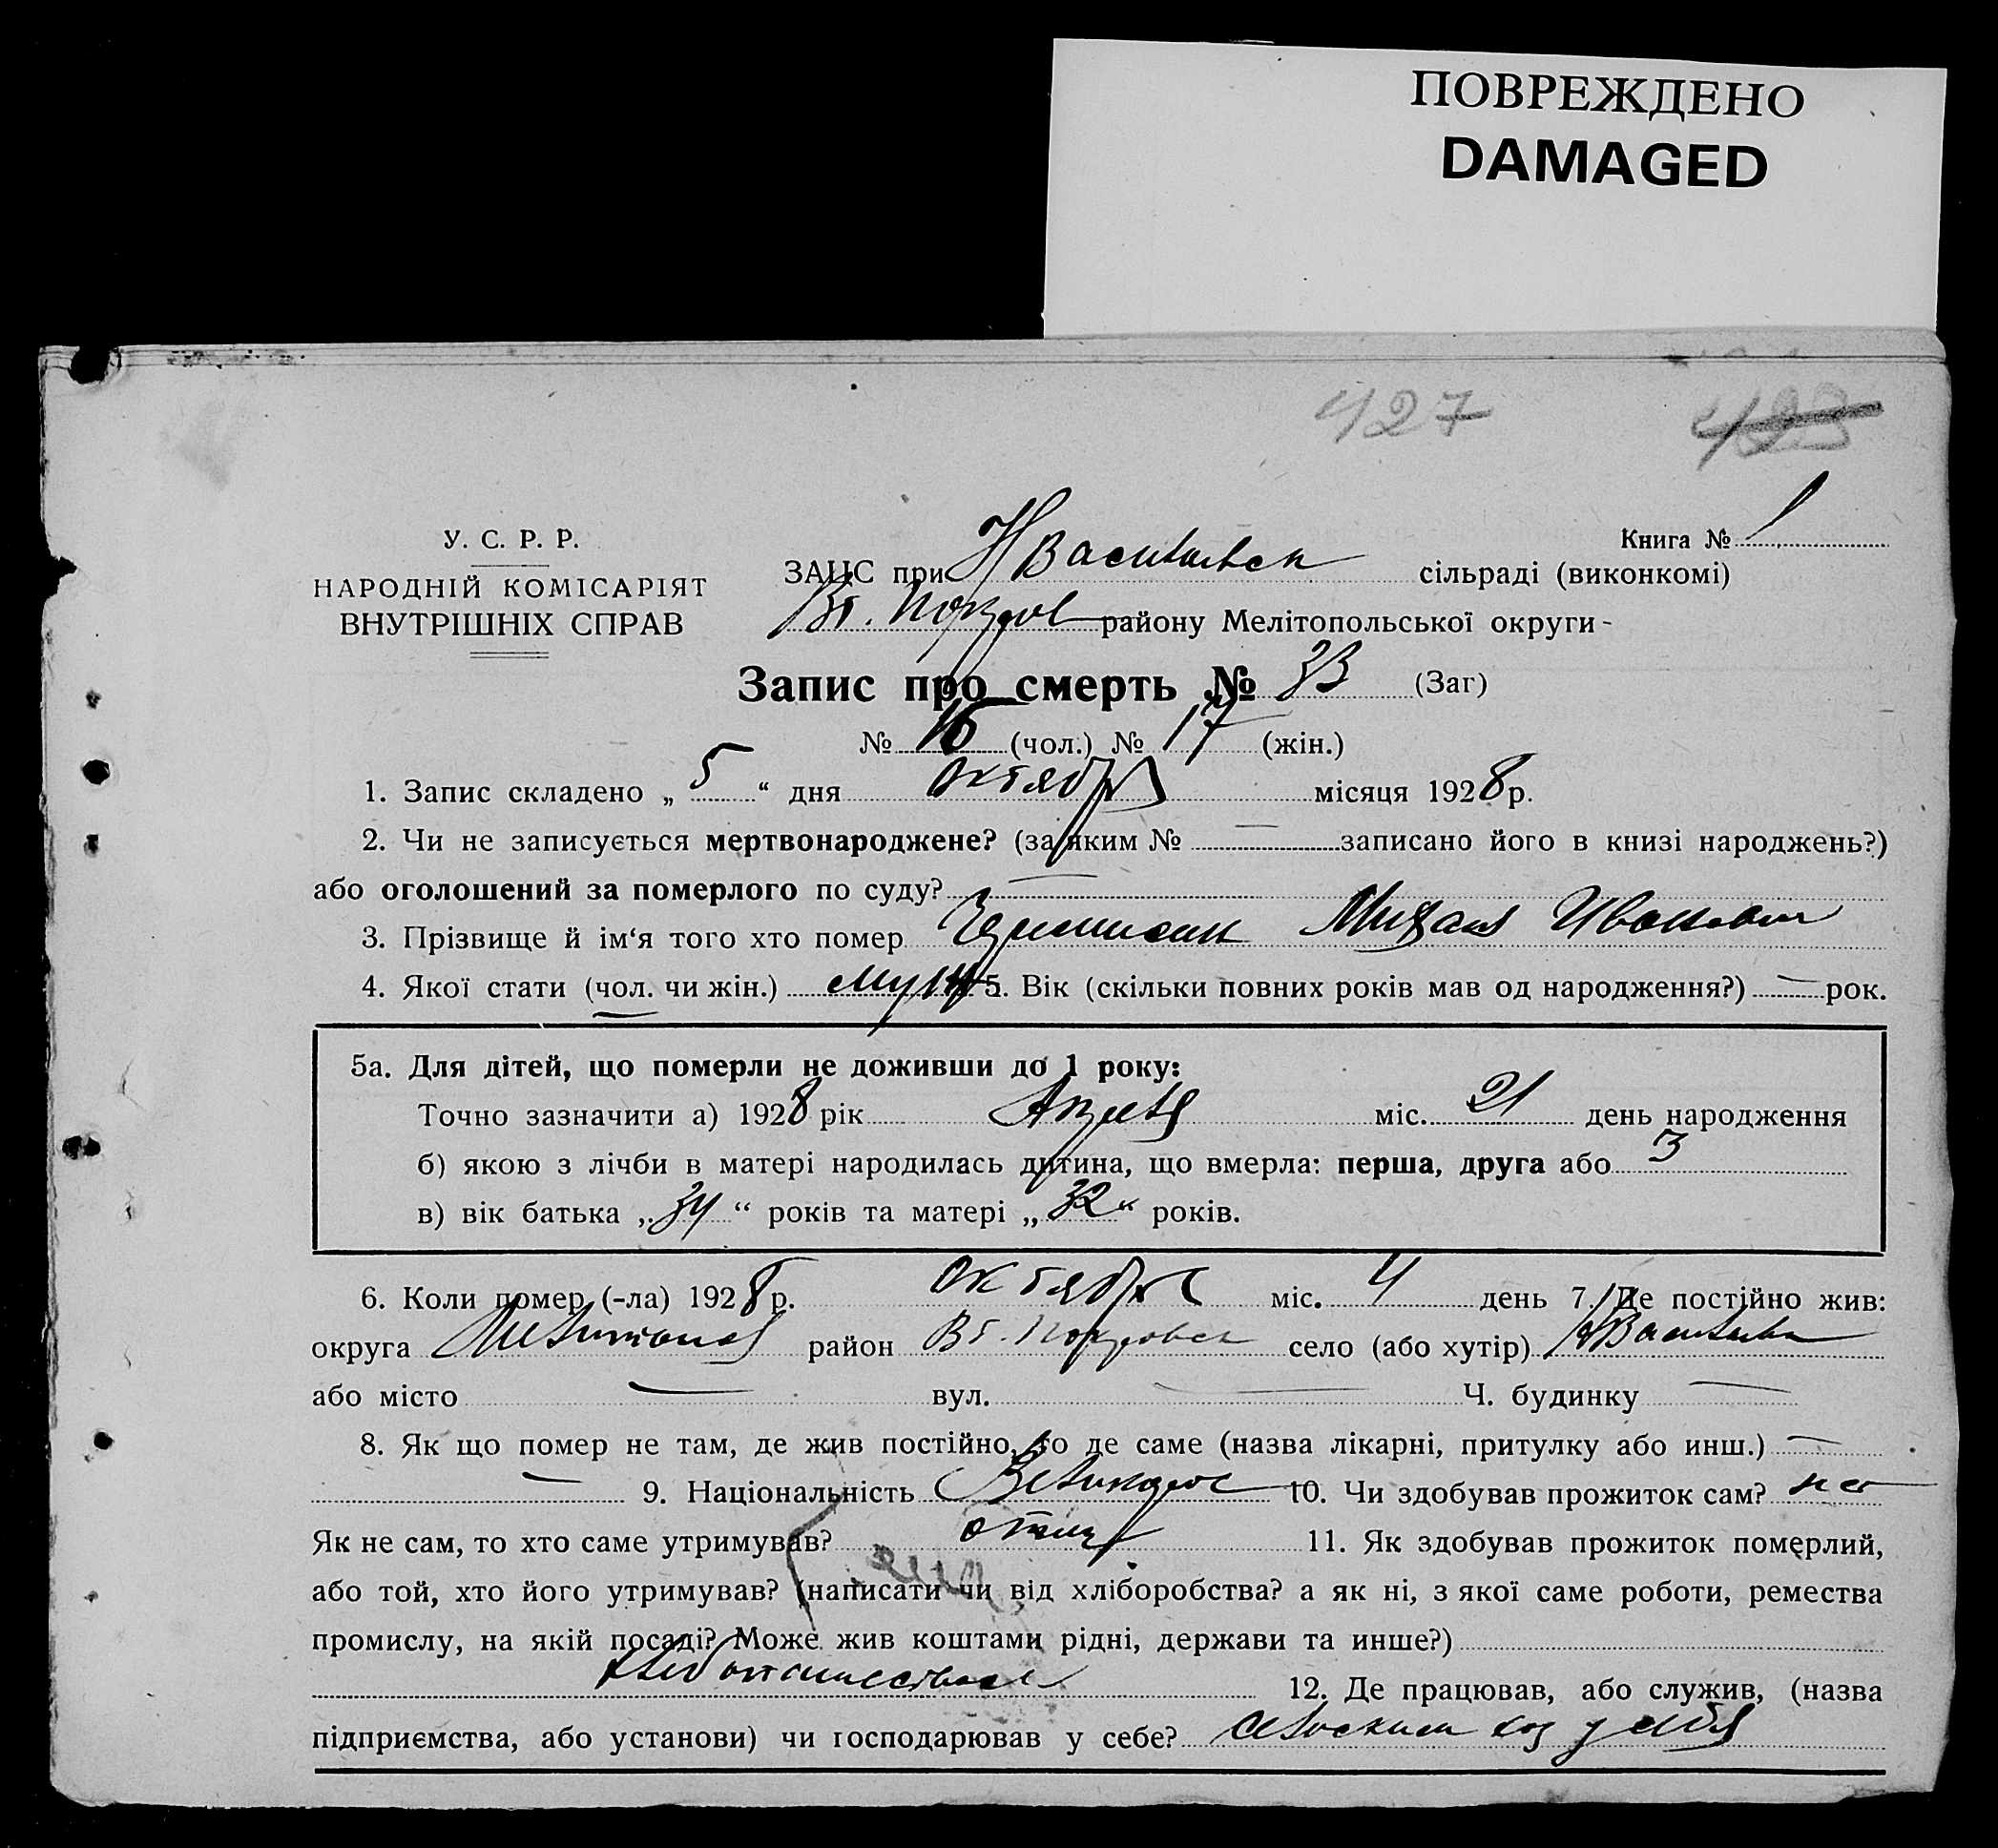 ПОВРЕЖДЕНО
DAMAGED
427 423
У. С. Р. Р.
НАРОДНІЙ КОМІСАРІЯТ
ВНУТРІШНІХ СПРАВ
Книга № 1
ЗАЦС при Н Васильевск сільраді (виконкомі)
Вт. Покров району Мелітопольської округи-
Запис про смерть № 33 (Заг)
№ 16 (чол.) № 17 (жін.)
1. Запис складено „ 5 “ дня октября місяця 1928 р.
2. Чи не записується мертвонароджене? (за яким № — записано його в книзі народжень?)
або оголошений за померлого по суду? —
3. Прізвище й ім‘я того хто помер Михаил Иванович
4. Якої стати (чол. чи жін.) муж 5. Вік (скільки повних років мав од народження?) — рок.
5а. Для дітей, що померли не доживши до 1 року:
Точно зазначити а) 1928 рік Апреля міс. 21 день народження
б) якою з лічби в матері народилась дитина, що вмерла: перша, друга або 3
в) вік батька „ 34 “ років та матері „ 32 “ років.
6. Коли помер (-ла) 1928 р. октября міс. 4 день 7. Де постійно жив:
округа Мелитопол район Вт. Покровск село (або хутір) Н Васильевк
або місто — вул. — Ч. будинку —
8. Як що помер не там, де жив постійно, то де саме (назва лікарні, притулку або инш.) —
— 9. Національність Великорос 10. Чи здобував прожиток сам? нет
Як не сам, то хто саме утримував? отец 11. Як здобував прожиток померлий,
або той, хто його утримував? (написати чи від хліборобства? а як ні, з якої саме роботи, ремества
промислу, на якій посаді? Може жив коштами рідні, держави та инше?)
хлебопашеством 12. Де працював, або служив, (назва
підприємства, або установи) чи господарював у себе? сельским хоз у себя